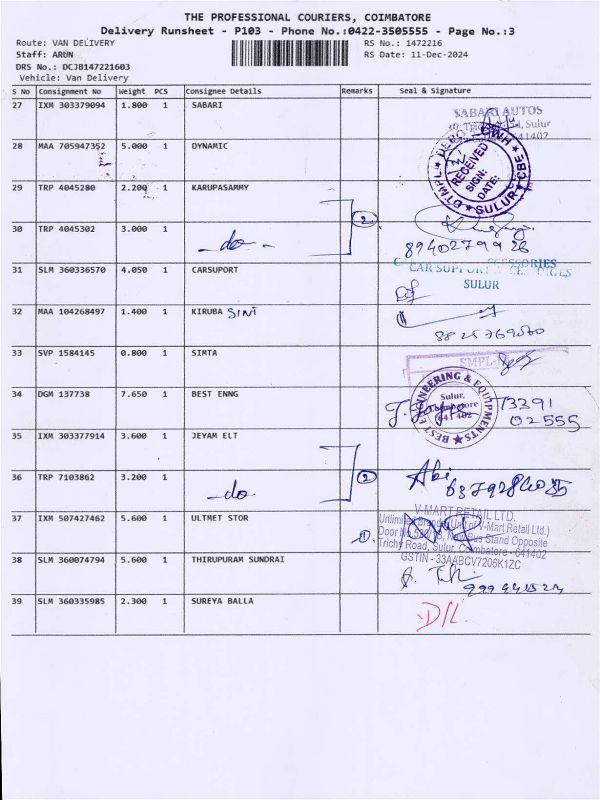 THE PROFESSIONAL COURIERS, COIMBATORE
Delivery Runsheet - P103 - Phone No.:0422-3505555 - Page No.:3
Route: VAN DELIVERY RS No.: 1472216
Staff: ARUN RS Date: 11-Dec-2024
DRS No.: DCJB147221603
Vehicle: Van Delivery
S No Consignment No Weight PCS Consignee Details Remarks Seal & Signature
27 IXM 303379094 1.800 1 SABARI
SABARI AUTOS
Sulur
641402
28 MAA 705947352 5.000 1 DYNAMIC
RECEIVED
SIGN:
DATE:
SULUR CBE
29 TRP 4045280 2.200 1 KARUPASAMMY
2
30 TRP 4045302 3.000 1
-do-
8940279926
31 SLM 360336570 4.050 1 CARSUPORT
CAR SUPPORT
SULUR
32 MAA 104268497 1.400 1 KIRUBA SINI
33 SVP 1584145 0.800 1 SIMTA
SMPL
34 DGM 137738 7.650 1 BEST ENNG
BEST ENGINEERING & EQUIPMENTS
Sulur,
Coimbatore
641 402
73391
02555
35 IXM 303377914 3.600 1 JEYAM ELT
2
36 TRP 7103862 3.200 1
-do
Abi
37 IXM 507427462 5.600 1 ULTMET STOR
V-MART RETAIL LTD.
Unlimited Brand (Unit of V-Mart Retail Ltd.)
Door No. New Bus Stand Opposite
Trichy Road, Sulur, Coimbatore - 641402
GSTIN - 33AABCV7206K1ZC
38 SLM 360074794 5.600 1 THIRUPURAM SUNDRAI
39 SLM 360335985 2.300 1 SUREYA BALLA
D/L.